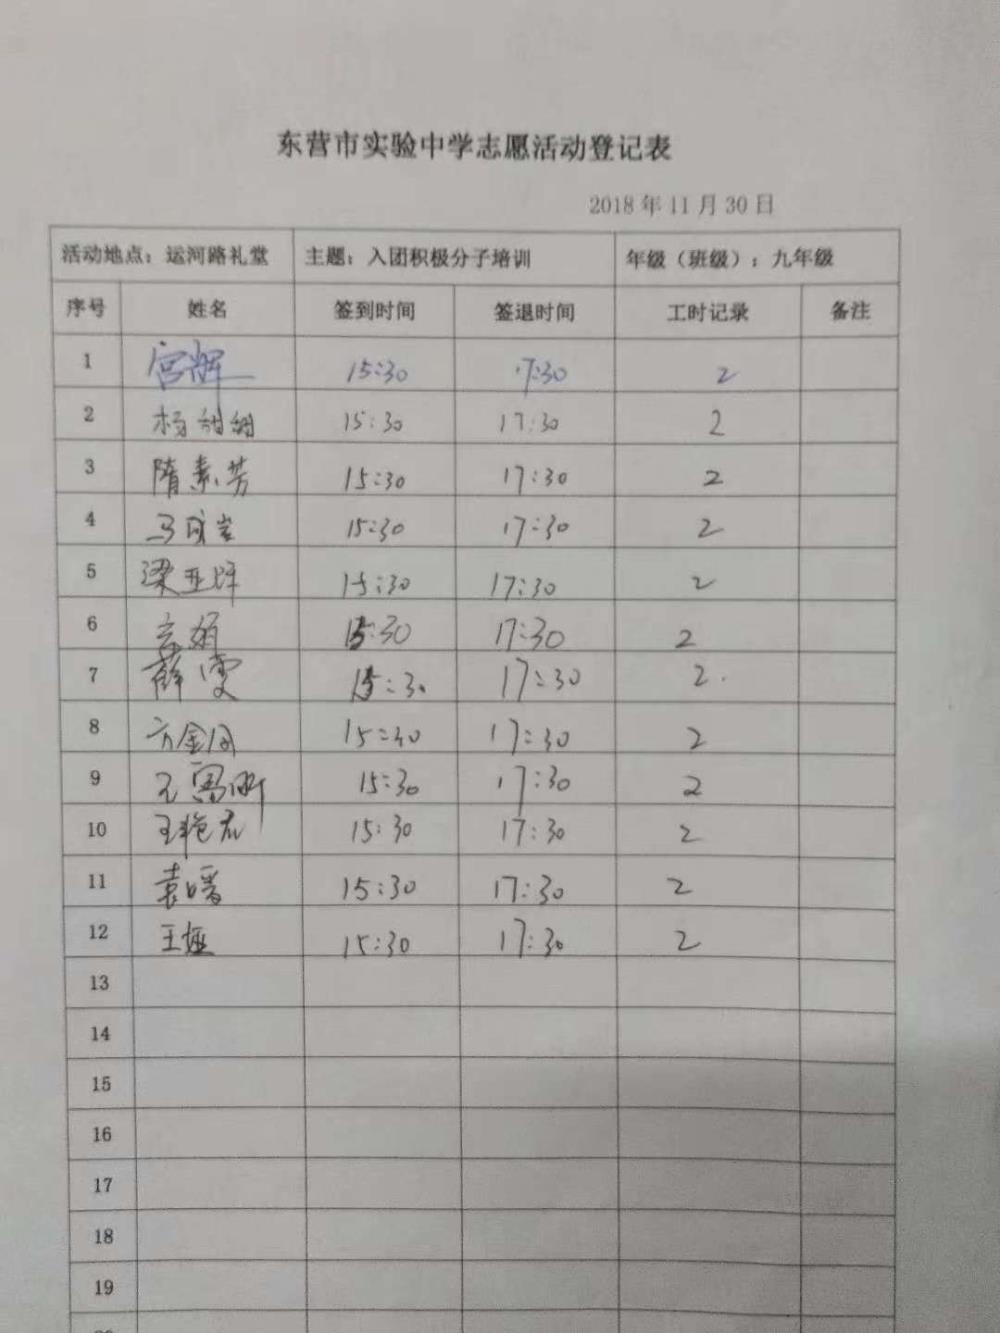 东营市实验中学志愿活动登记表
2018 年 11 月 30 日
活动地点：运河路礼堂 主题：入团积极分子培训 年级（班级）：九年级
序号 姓名 签到时间 签退时间 工时记录 备注
1 宫辉 15:30 17:30 2
2 杨甜甜 15:30 17:30 2
3 隋素芳 15:30 17:30 2
4 马成岩 15:30 17:30 2
5 梁亚 15:30 17:30 2
6 娟 15:30 17:30 2
7 薛雯 15:30 17:30 2
8 方金 15:30 17:30 2
9 15:30 17:30 2
10 王艳 15:30 17:30 2
11 袁 15:30 17:30 2
12 王 15:30 17:30 2
13
14
15
16
17
18
19